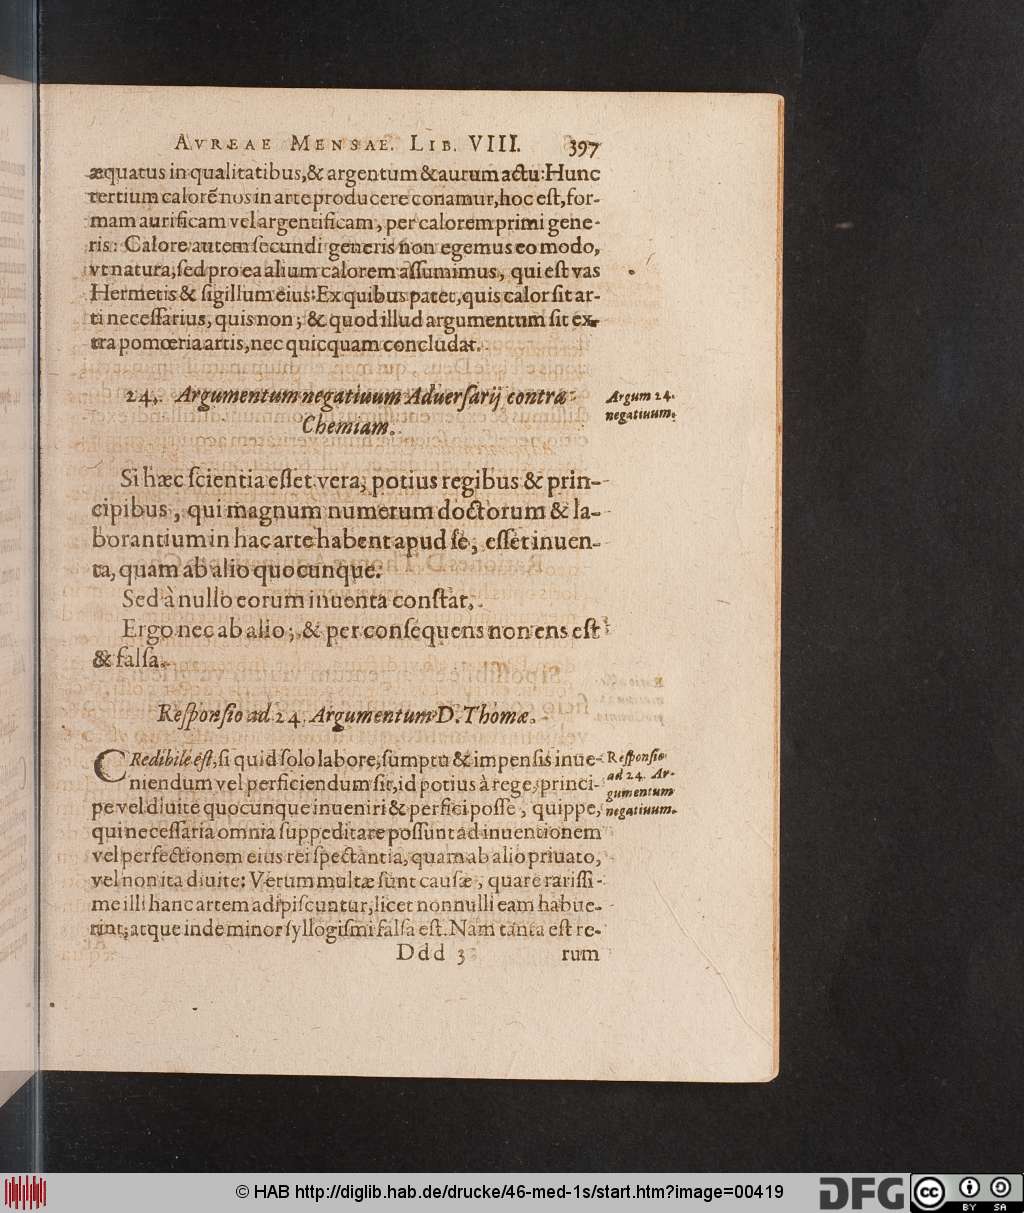 AVREAE MENSAE. LIB. VIII. 397
æquatus in qualitatibus, & argentum & aurum actu: Hunc
tertium calorẽ nos in arte producere conamur, hoc est, for-
mam aurificam vel argentificam, per calorem primi gene-
ris: Calore autem secundi generis non egemus eo modo,
vt natura, sed pro ea alium calorem assumimus, qui est vas
Hermetis & sigillum eius: Ex quibus patet, quis calor sit ar-
ti necessarius, quis non; & quod illud argumentum sit ex-
tra pomœria artis, nec quicquam concludat.
24. Argumentum negatiuum Aduersarij contra
Chemiam.
Argum 24.
negatiuum.
Si hæc scientia esset vera, potius regibus & prin-
cipibus, qui magnum numerum doctorum & la-
borantium in hac arte habent apud se, esset inuen-
ta, quam ab alio quocunque.
Sed à nullo eorum inuenta constat.
Ergo nec ab alio; & per consequens non ens est
& falsa.
Responsio ad 24. Argumentum D. Thomæ.
CRedibile est, si quid solo labore, sumptu & impensis inue-
niendum vel perficiendum sit, id potius à rege, princi-
pe vel diuite quocunque inueniri & perfici posse, quippe,
qui necessaria omnia suppeditare possunt ad inuentionem
vel perfectionem eius rei spectantia, quam ab alio priuato,
vel non ita diuite: Verum multæ sunt causæ, quare rarissi-
me illi hanc artem adipiscuntur, licet nonnulli eam habue-
rint; atque inde minor syllogismi falsa est. Nam tanta est re-
Responsio
ad 24. Ar-
gumentum
negatiuum.
Ddd 3 rum
© HAB http://diglib.hab.de/drucke/46-med-1s/start.htm?image=00419
DFG
cc BY SA